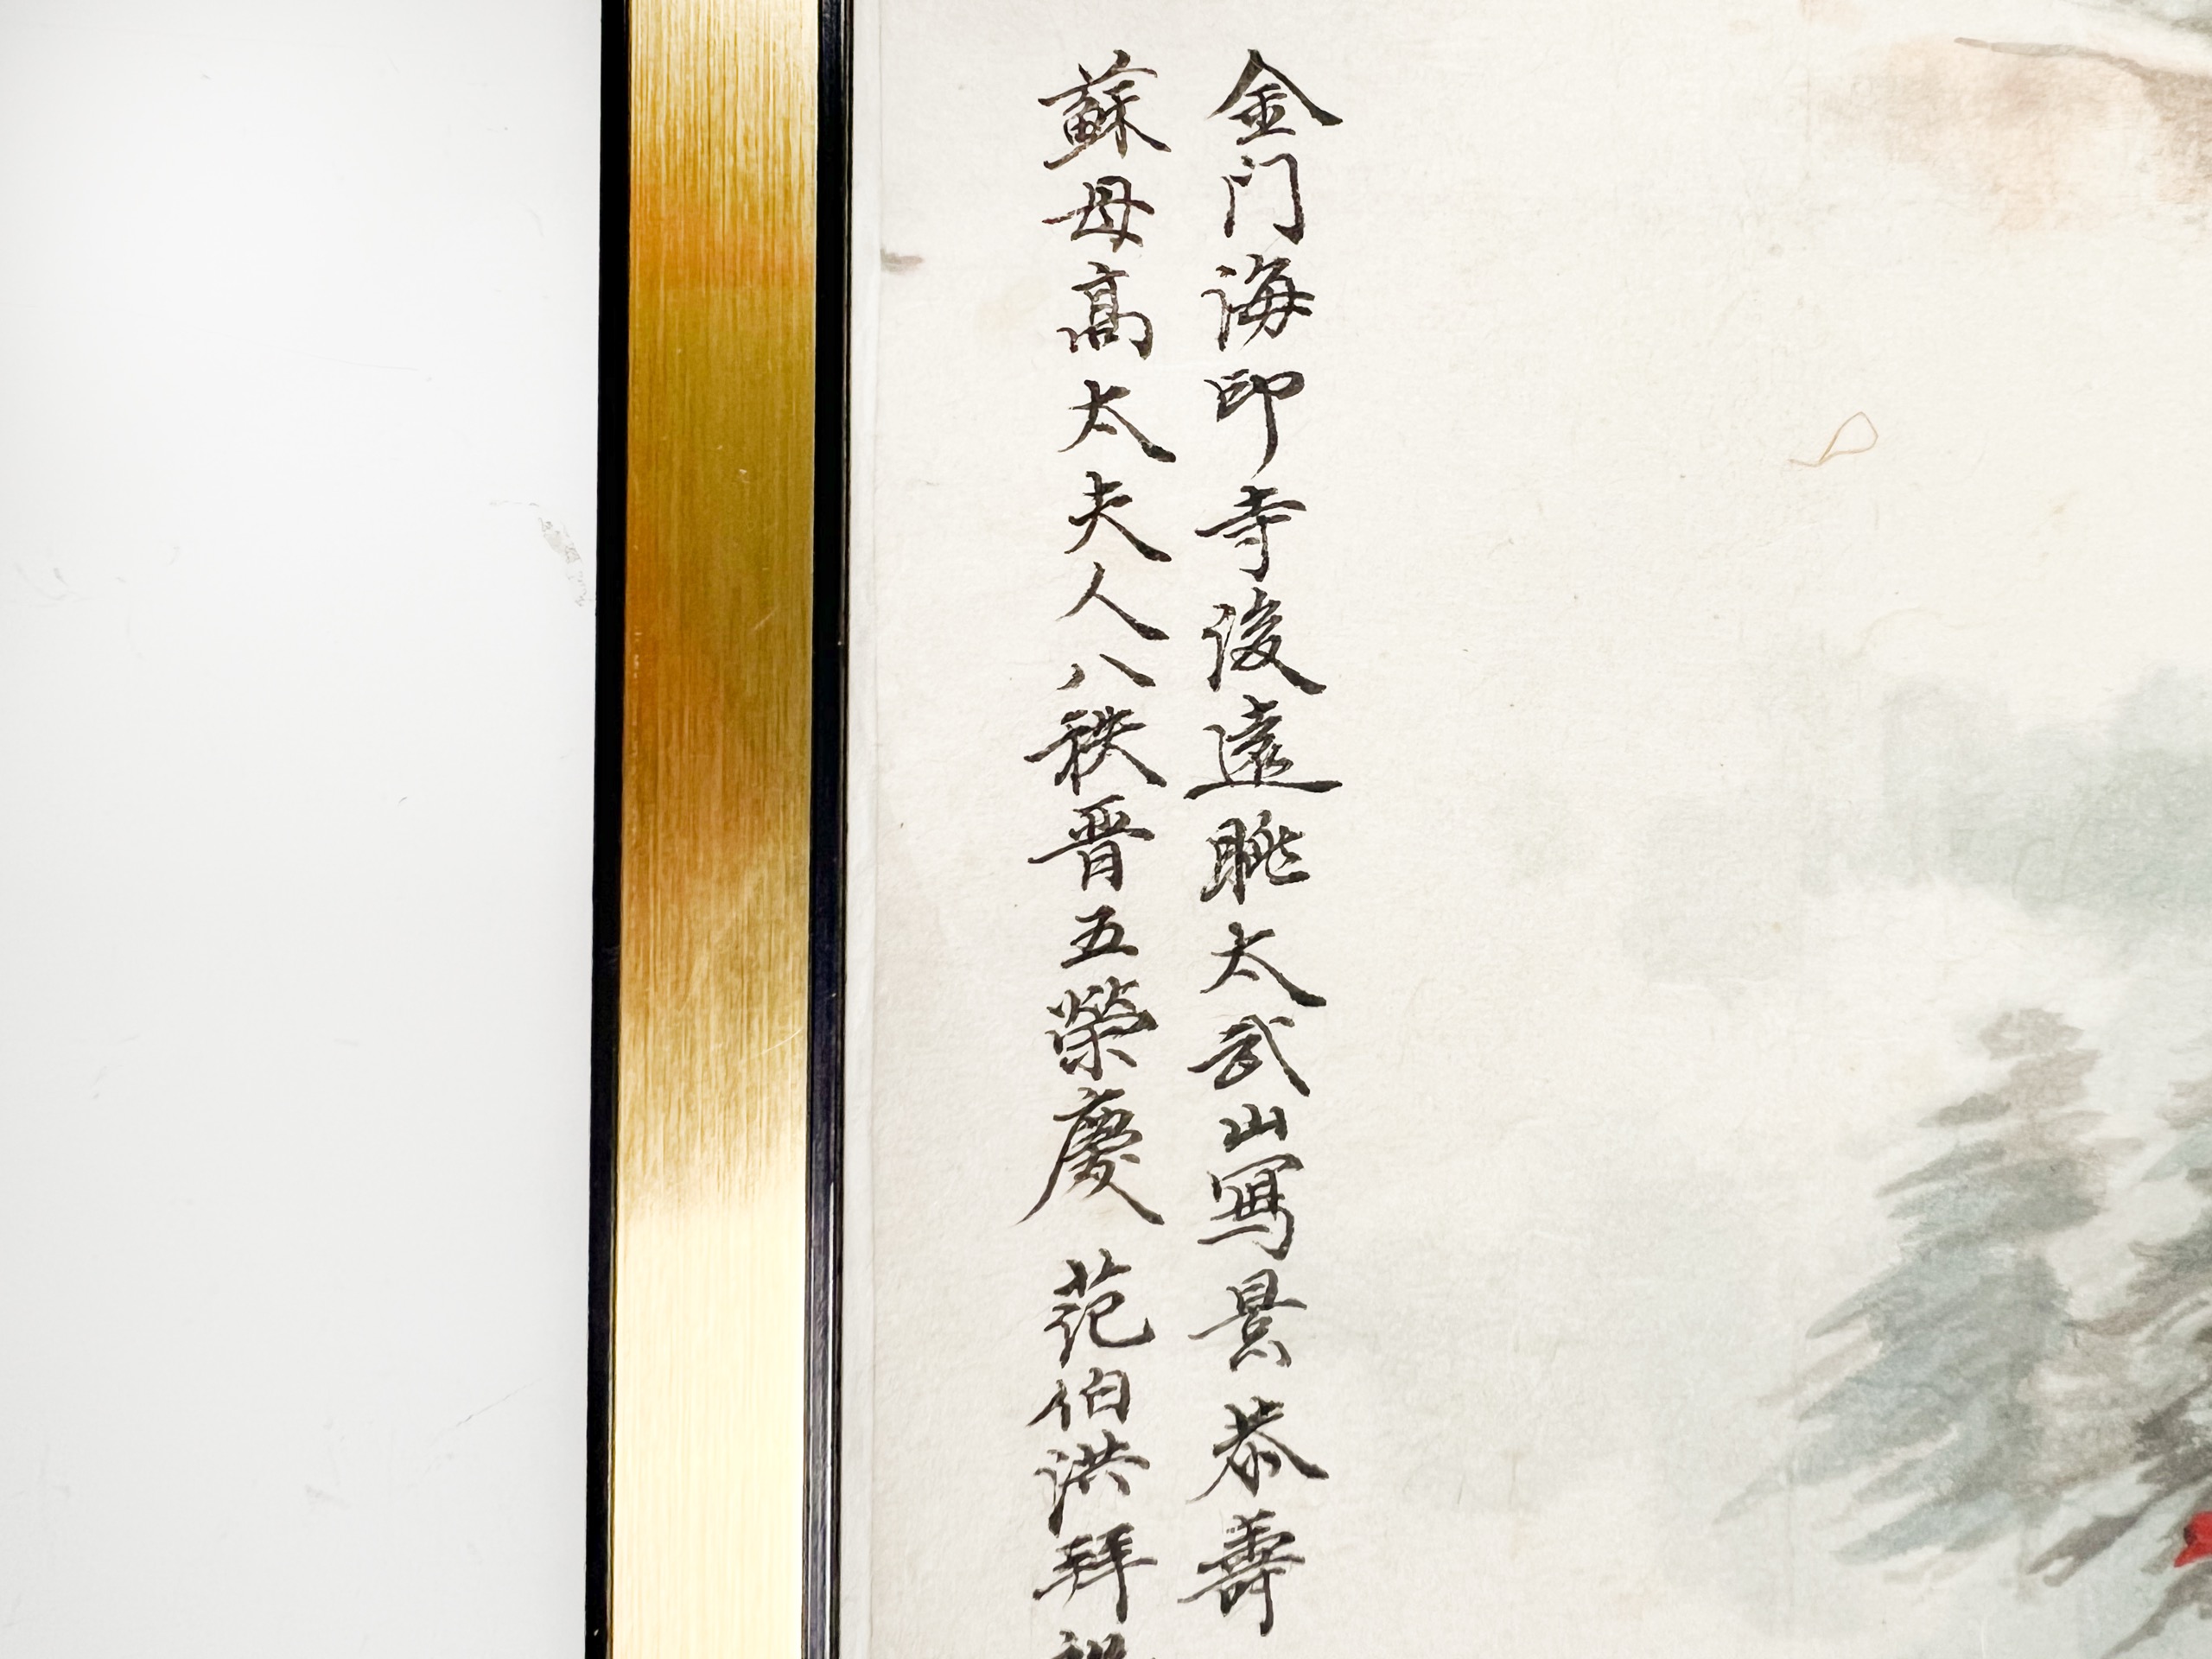 金门海印寺後遠眺太武山寫景恭壽
蘇母高太夫人八秩晋五榮慶 范伯洪拜祝